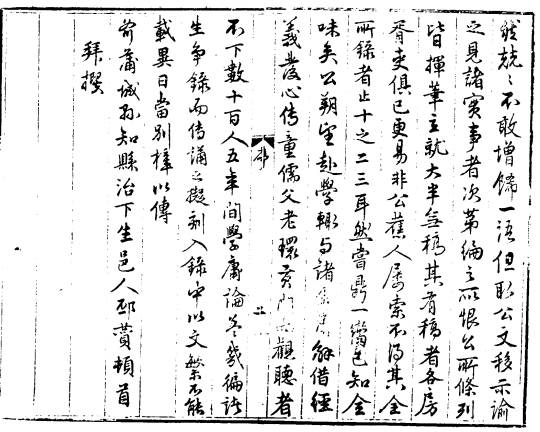 然兢兢不敢增飾一語但取公文移示諭
之見諸實事者次第編之所恨公所條列
皆揮筆立就大半無稿其有稿者各房
胥吏俱已更易非公舊人屢索不得其全
所錄者止十之二三耳然嘗鼎一臠已知全
味矣公朔望赴學輒与諸生講解借經
義發心傳童儒父老環黌門而觀聽者
不下數十百人五年間學庸論孟幾徧諸
生爭錄而傳誦之擬刻入錄中以文繁不能
載異日當別梓以傳
前蒲城縣知縣治下生邑人頓首
拜撰